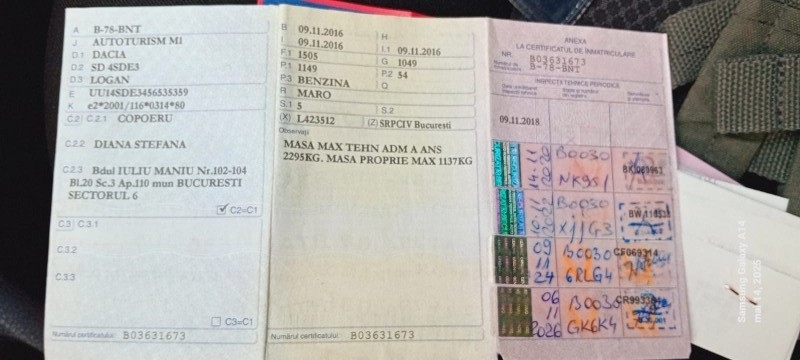 A B-78-BNT
J AUTOTURISM M1
D.1 DACIA
D.2 SD 4SDE3
D.3 LOGAN
E UU14SDE3456535359
K e2*2001/116*0314*80
C.2 C.2.1 COPOERU
C.2.2 DIANA STEFANA
C.2.3 Bdul IULIU MANIU Nr.102-104
Bl.20 Sc.3 Ap.110 mun BUCURESTI
SECTORUL 6
C2=C1
C.3 C.3.1
C.3.2
C.3.3
C3=C1
Numărul certificatului B03631673
B 09.11.2016 H
I 09.11.2016 I.1 09.11.2016
F.1 1505 G 1049
P.1 1149 P.2 54
P.3 BENZINA Q
R MARO
S.1 5 S.2
(X) L423512 (Z) SRPCIV Bucuresti
Observaţii
MASA MAX TEHN ADM A ANS
2295KG. MASA PROPRIE MAX 1137KG
Numărul certificatului B03631673
ANEXA
LA CERTIFICATUL DE INMATRICULARE
NR. B03631673
B-78-BNT
INSPECŢII TEHNICE PERIODICE
09.11.2018
B0030
NK9S1
B0030
XJJG3
BW
09
11
24
B0030
6RLG4
CF069314
06
11
2026
B0030
GK6K4
Samsung Galaxy A14
mai 14, 2025